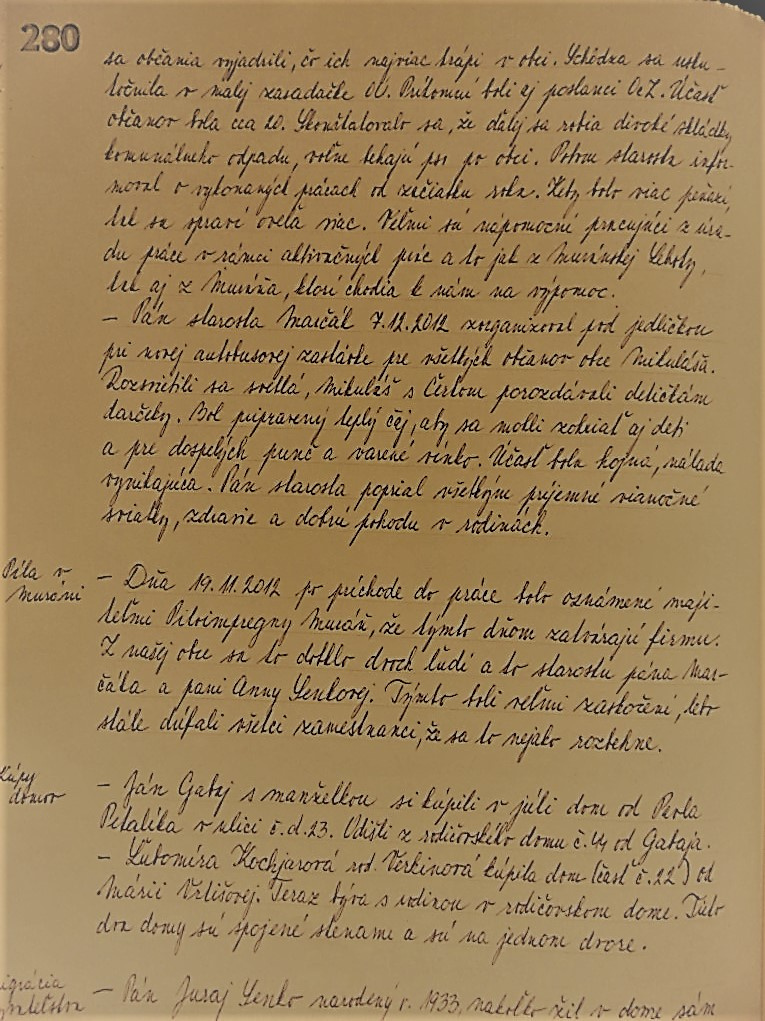 280
sa občania vyjadrili, čo ich najviac trápi v obci. Schôdza sa usku-
točnila v malej zasadačke OÚ. Prítomní boli aj poslanci OcZ. Účasť
občanov bola cca 20. Skonštatovalo sa, že ďalej sa robia divoké skládky
komunálneho odpadu, voľne behajú psi po obci. Potom starosta infor-
moval o vykonaných prácach od začiatku roka. Keby bolo viac peňazí,
tak sa spraví oveľa viac. Veľmi sú nápomocní pracujúci z úra-
du práce v rámci aktivačných prác a to jak z Muránskej Lehoty,
tak aj z Muráňa, ktorí chodia k nám na výpomoc.
- Pán starosta Marčák 7.12.2012 zorganizoval pod jedličkou
pri novej autobusovej zastávke pre všetkých občanov obce Mikuláša.
Rozsvietili sa svetlá, Mikuláš s Čertom porozdávali detičkám
darčeky. Bol pripravený teplý čaj, aby sa mohli zohriať aj deti
a pre dospelých punč a varené vínko. Účasť bola hojná, nálada
vynikajúca. Pán starosta poprial všetkým príjemné vianočné
sviatky, zdravie a dobrú pohodu v rodinách.
Píla v
Muráni
- Dňa 19.11.2012 po príchode do práce bolo oznámené maji-
teľmi Piloimpregny Muráň, že týmto dňom zatvárajú firmu.
Z našej obce sa to dotklo dvoch ľudí a to starostu pána Mar-
čáka a pani Anny Senkovej. Týmto boli veľmi zaskočení, lebo
stále dúfali všetci zamestnanci, že sa to nejako rozbehne.
Kúpy
domov
- Ján Gabaj s manželkou si kúpili v júli dom od Pavla
Petalíka v ulici č.d.23. Odišli z rodičovského domu č.44 od Gabaja.
- Ľubomíra Kochjarová rod. Verkinová kúpila dom (časť č.22) od
Márii Vrlišovej. Teraz býva s rodinou v rodičovskom dome. Tieto
dva domy sú spojené stename a sú na jednom dvore.
igrácia
- Pán Juraj Senko narodený r. 1933, nakoľko žil v dome sám